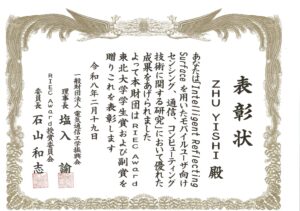 表彰状
ZHU YISHI 殿
あなたはIntelligent Reflecting
Surfaceを用いたモバイルユーザ向け
センシング、通信、コンピューティング
技術に関する研究において優れた
成果をあげられました
よって本財団はRIEC Award
東北大学学生賞および副賞を
贈りこれを表彰します
令和八年二月十九日
一般財団法人 電気通信工学振興会
理事長 塩入 諭
RIEC Award授賞委員会
委員長 石山和志